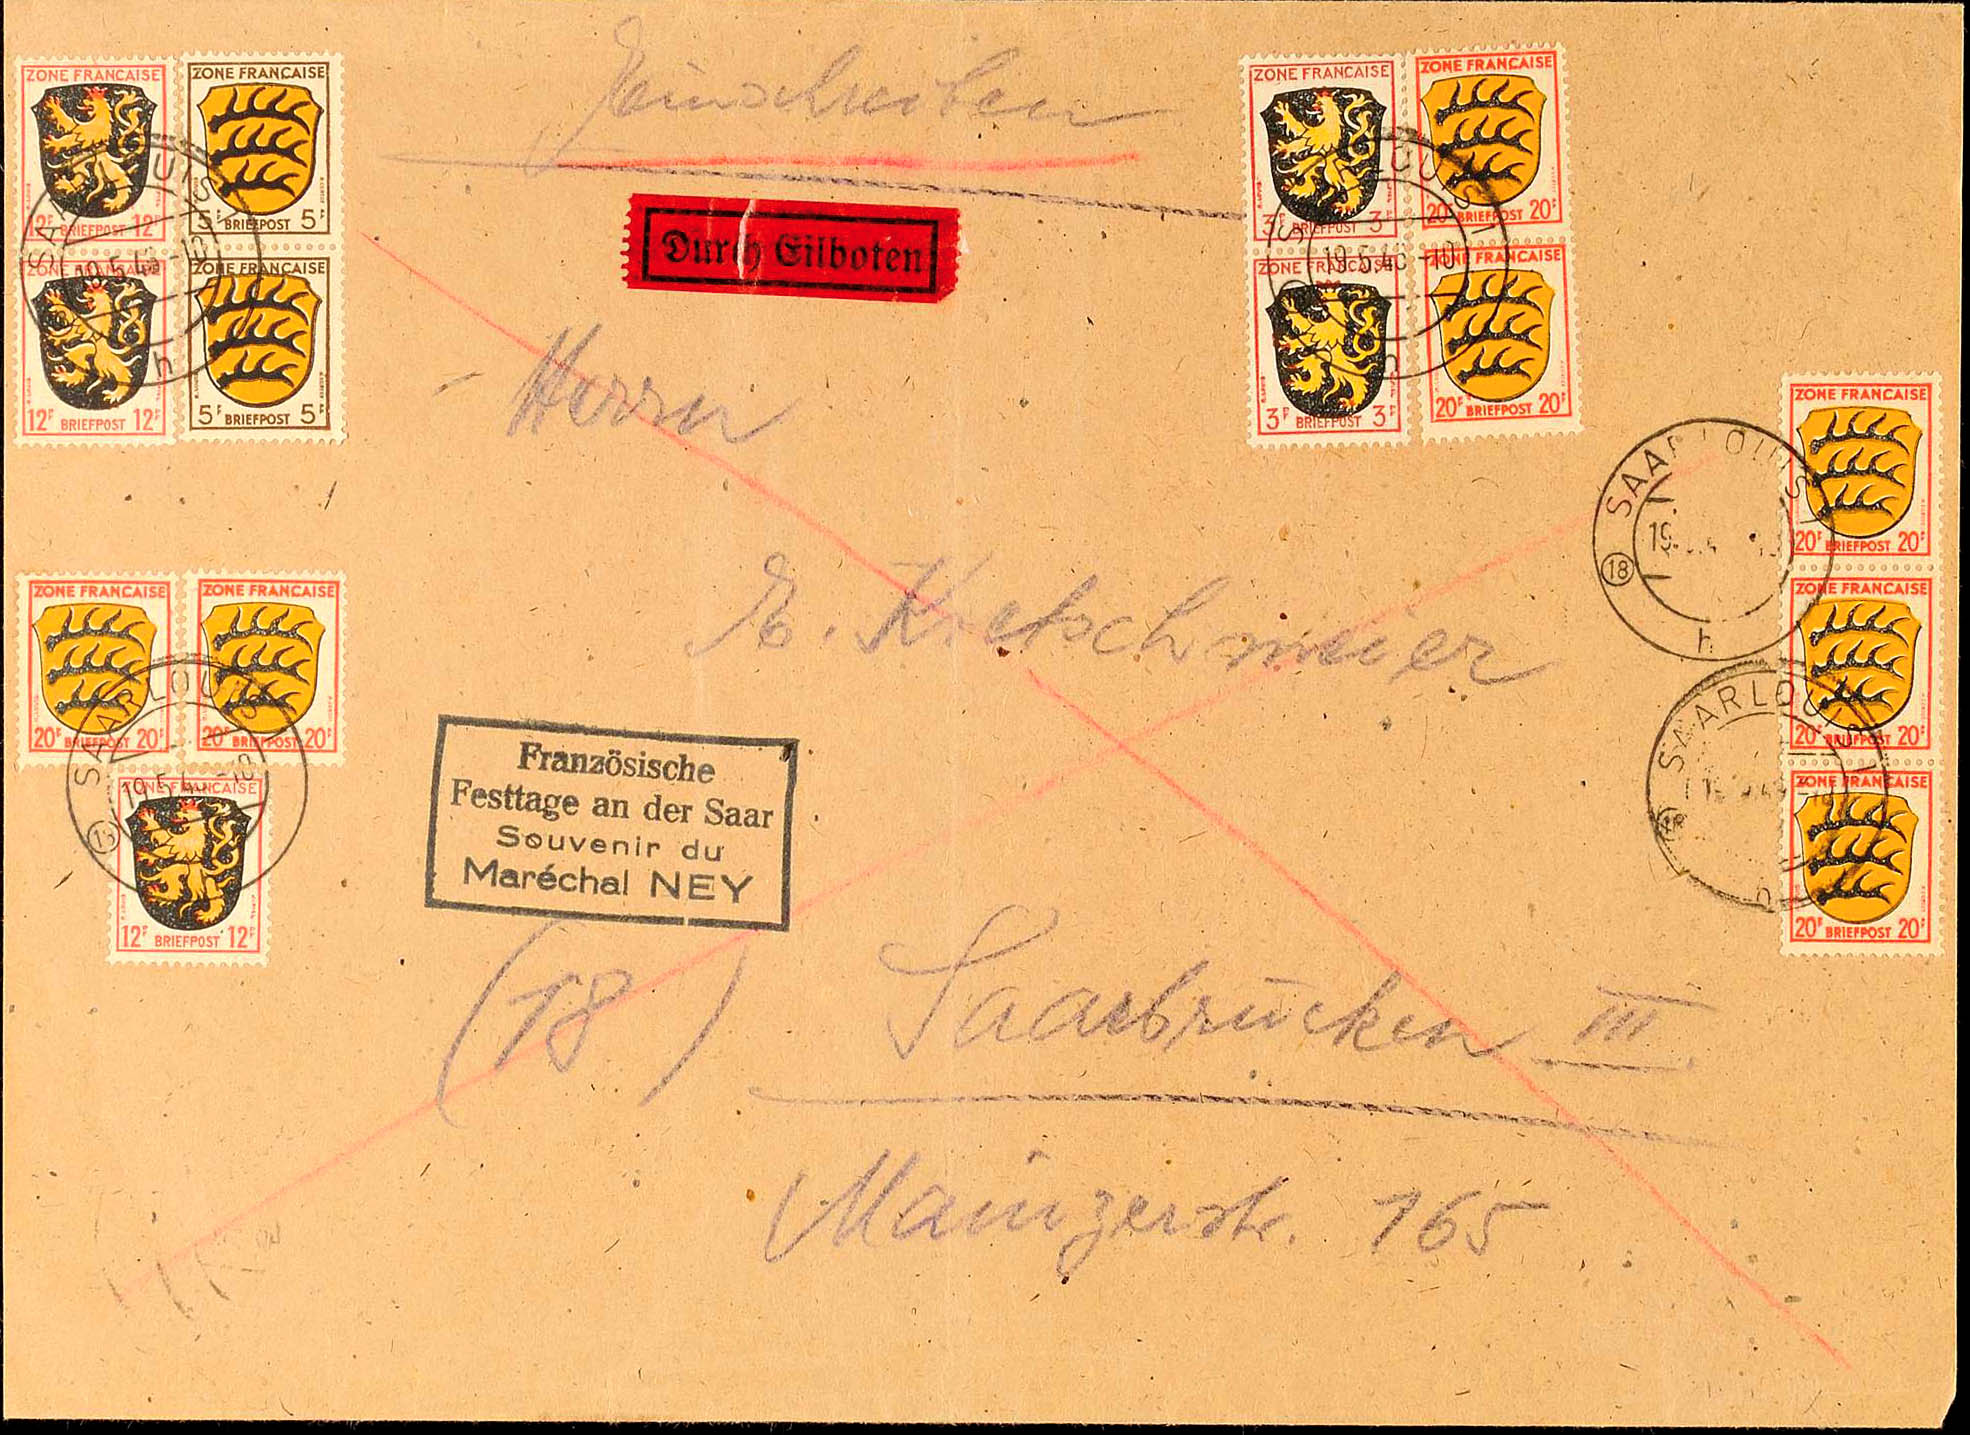 Einschreiben
Durch Eilboten
ZONE FRANÇAISE
12F BRIEFPOST 12F
ZONE FRANÇAISE
5F BRIEFPOST 5F
ZONE FRANÇAISE
12F BRIEFPOST 12F
ZONE FRANÇAISE
5F BRIEFPOST 5F
SAARLOUIS 1
19.5.46-10
h
ZONE FRANÇAISE
3F BRIEFPOST 3F
ZONE FRANÇAISE
20F BRIEFPOST 20F
ZONE FRANÇAISE
3F BRIEFPOST 3F
ZONE FRANÇAISE
20F BRIEFPOST 20F
SAARLOUIS 1
19.5.46-10
h
Herrn
E. Kretschmeier
ZONE FRANÇAISE
20F BRIEFPOST 20F
ZONE FRANÇAISE
20F BRIEFPOST 20F
ZONE FRANÇAISE
20F BRIEFPOST 20F
SAARLOUIS 1
18
h
SAARLOUIS 1
h
ZONE FRANÇAISE
20F BRIEFPOST 20F
ZONE FRANÇAISE
20F BRIEFPOST 20F
ZONE FRANÇAISE
12F BRIEFPOST 12F
SAARLOUIS 1
Französische
Festtage an der Saar
Souvenir du
Maréchal NEY
(18) Saarbrücken III.
Mainzerstr. 165